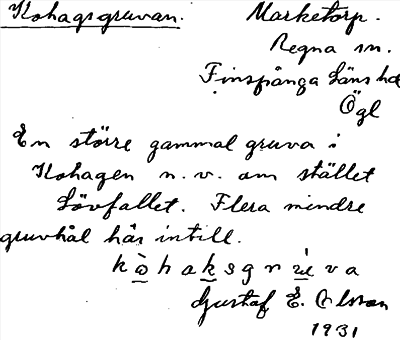 Kohagsgruvan. Marketorp.
Regna sn.
Finspånga läns hd
Ögl
En större gammal gruva i
Kohagen n.v. om stället
Lövfallet. Flera mindre
gruvhål här intill.
kòhaksgrúva
Gustaf E. Olsson
1931